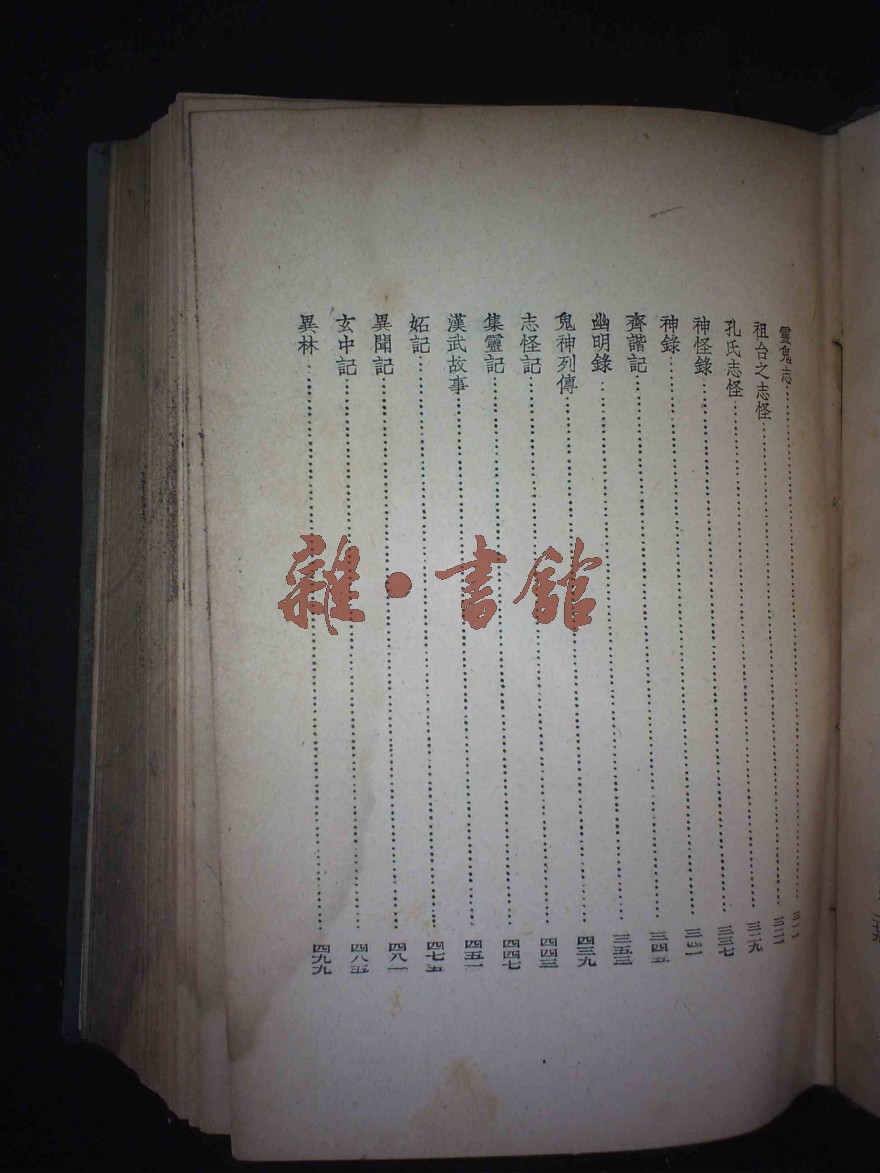 靈鬼志……三一一
祖台之志怪……三二一
孔氏志怪……三二九
神怪錄……三三七
神錄……三四一
齊諧記……三四五
幽明錄……三五三
鬼神列傳……四三九
志怪記……四四三
集靈記……四四七
漢武故事……四五一
妬記……四七五
異聞記……四八一
玄中記……四八五
異林……四九九
雜·書館